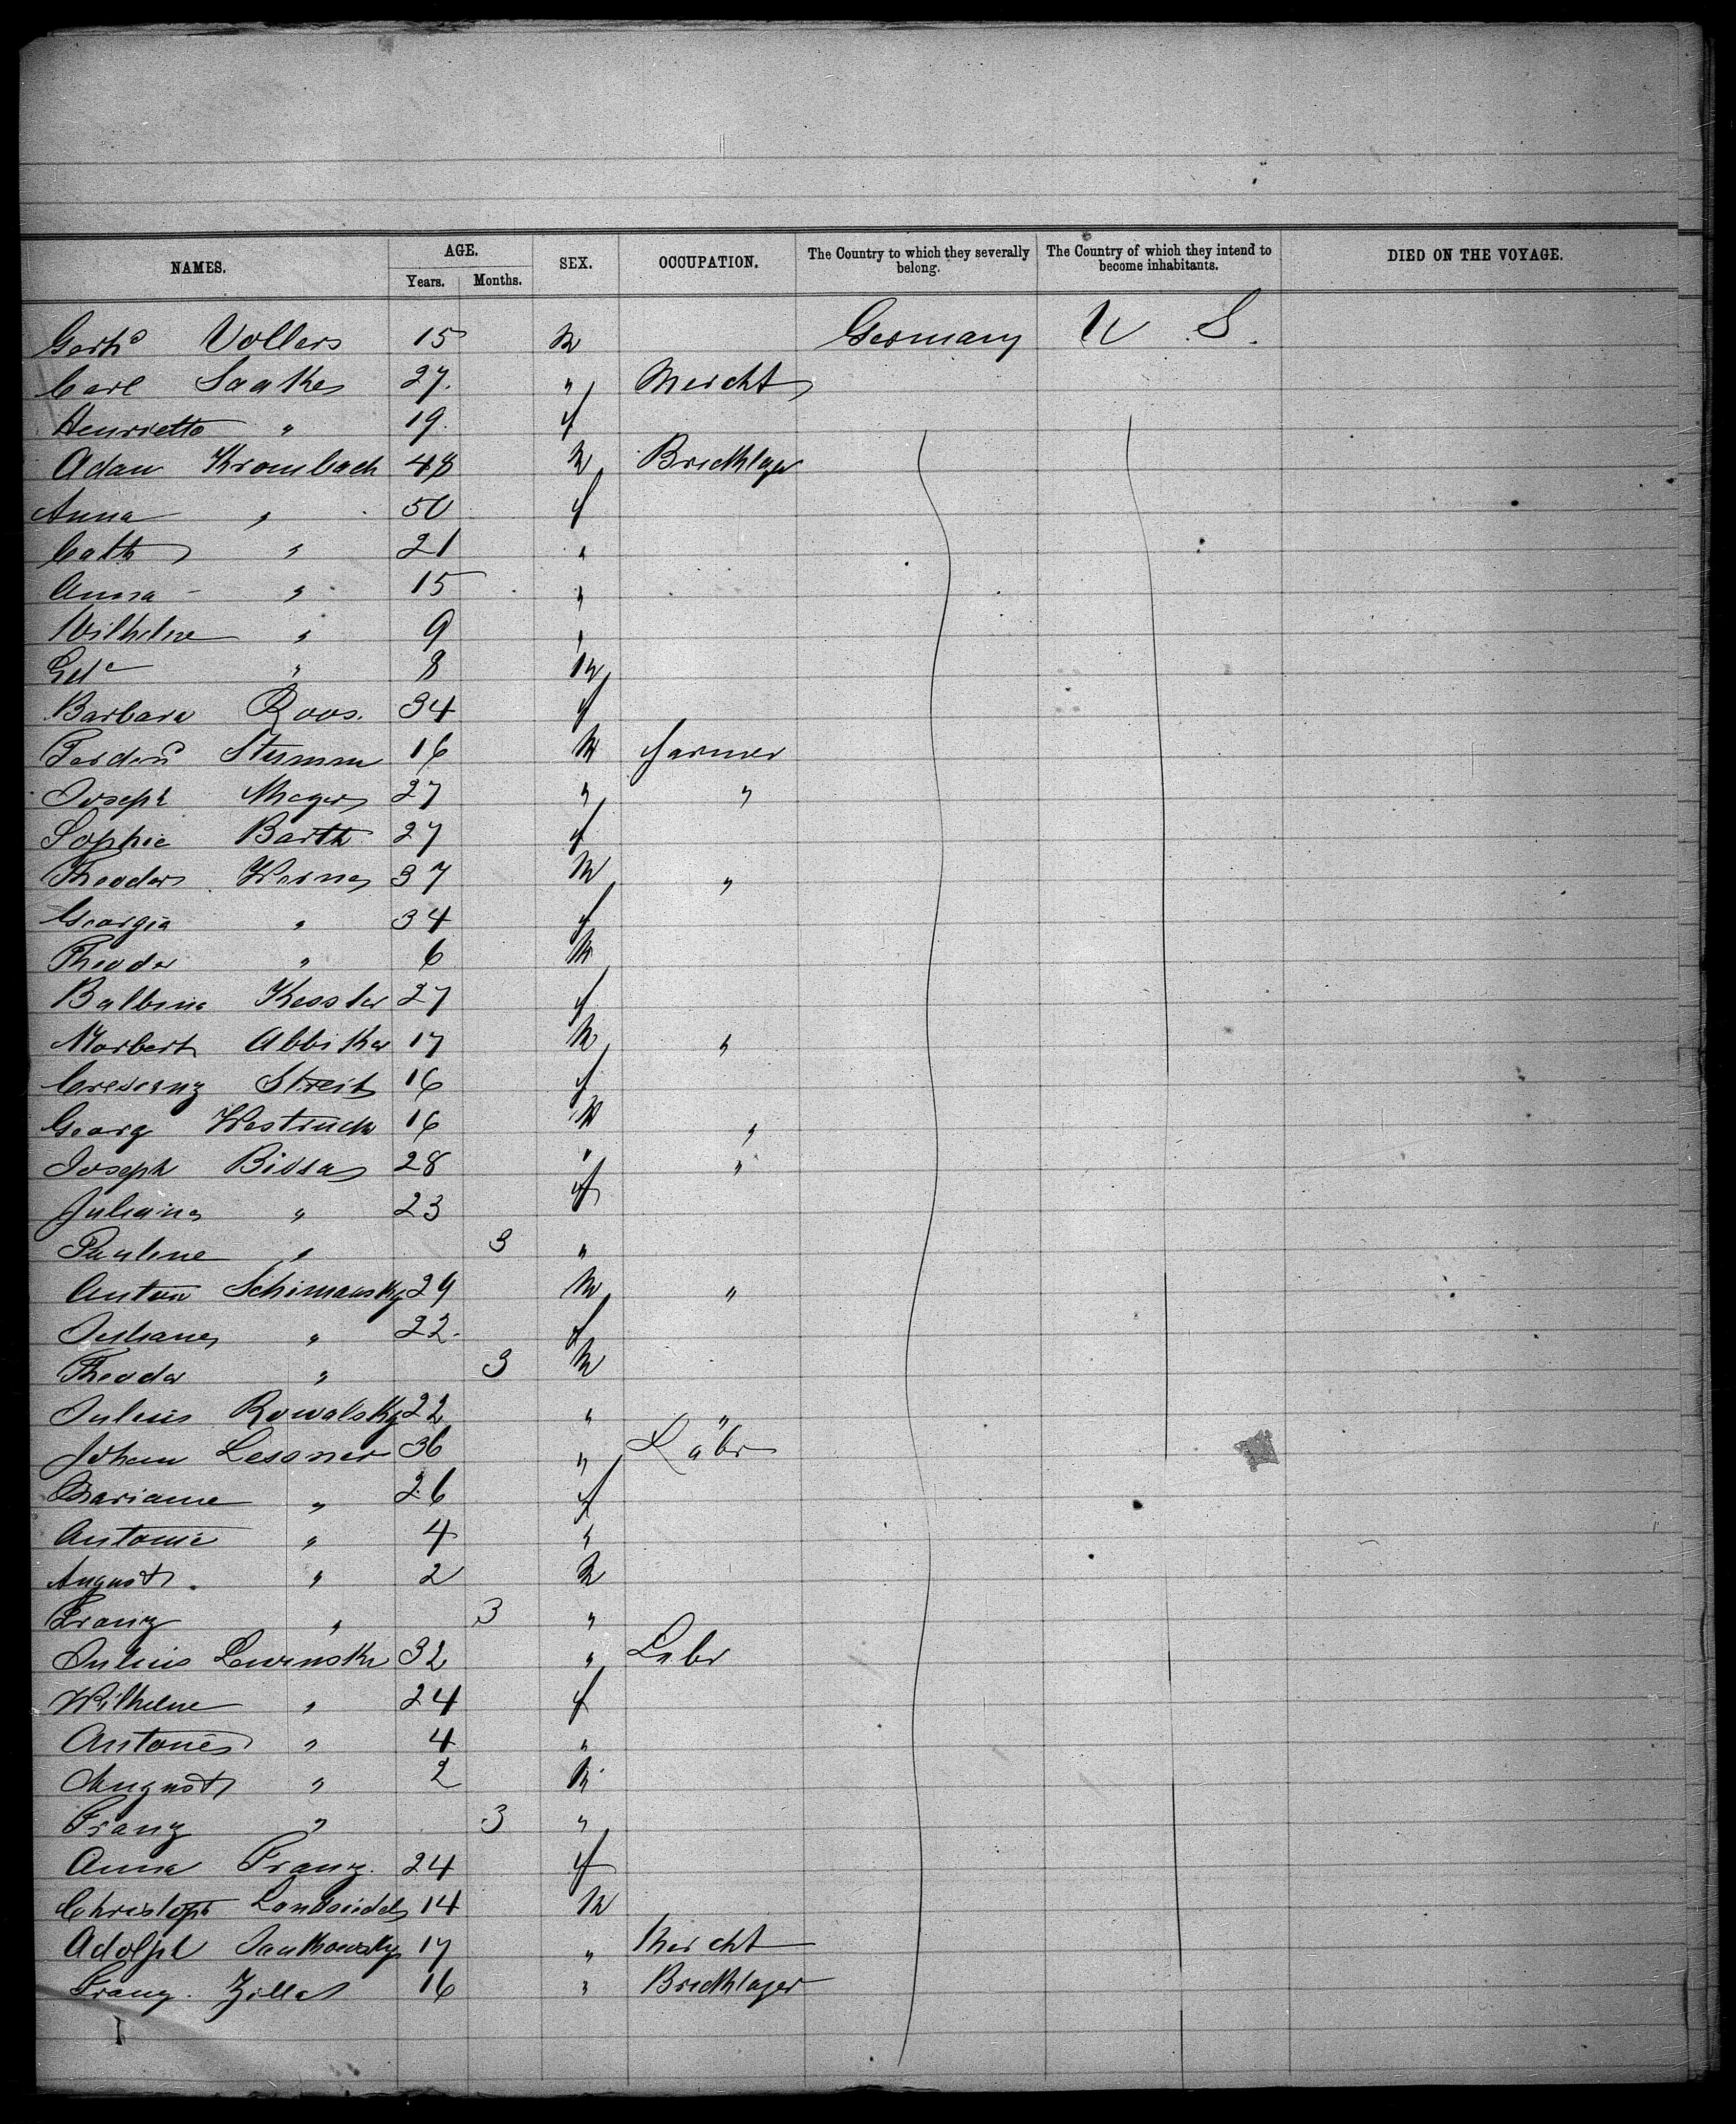 NAMES. AGE. SEX. OCCUPATION. The Country to which they severally belong. The Country of which they intend to become inhabitants. DIED ON THE VOYAGE.
Years. Months.
Gerhd Vollers 15 m Germany U S.
Carl Saake 27. " Mercht
Henriette " 19. f
Adam Krombach 48 m Bricklayer
Anna " 50 f
Cath " 21 "
Anna " 15 "
Wilhelm " 9 "
" 8 m
Barbara Roos. 34 f
Ferdind Stumm 16 m farmer
Joseph Mayer 27 " "
Sophie Barth 27 f
Theodor Werner 37 m "
Georgia " 34 f
Theodor " 6 m
Balbina Kessler 27 f
Norbert Abbiker 17 m "
Cresenz Streit 16 f
Georg 16 m "
Joseph Bissa 28 " "
Juliana " 23 f
Pauline " 3 "
Anton Schimansky 29 m "
Juliane " 22. f
Theodor " 3 m
Julius Kowalsky 22 " "
Johann Lessner 36 " Labr
Mariane " 26 f
Antonie " 4 "
August " 2 m
Franz " 3 "
Julius Lewinski 32 " Labr
Wilhelm " 24 f
Antonie " 4 "
August " 2 m
Franz " 3 "
Anna Franz. 24 f
Christoph 14 m
Adolph Jankowsky 17 " Mercht
Franz. Zilla 16 " Bricklayer